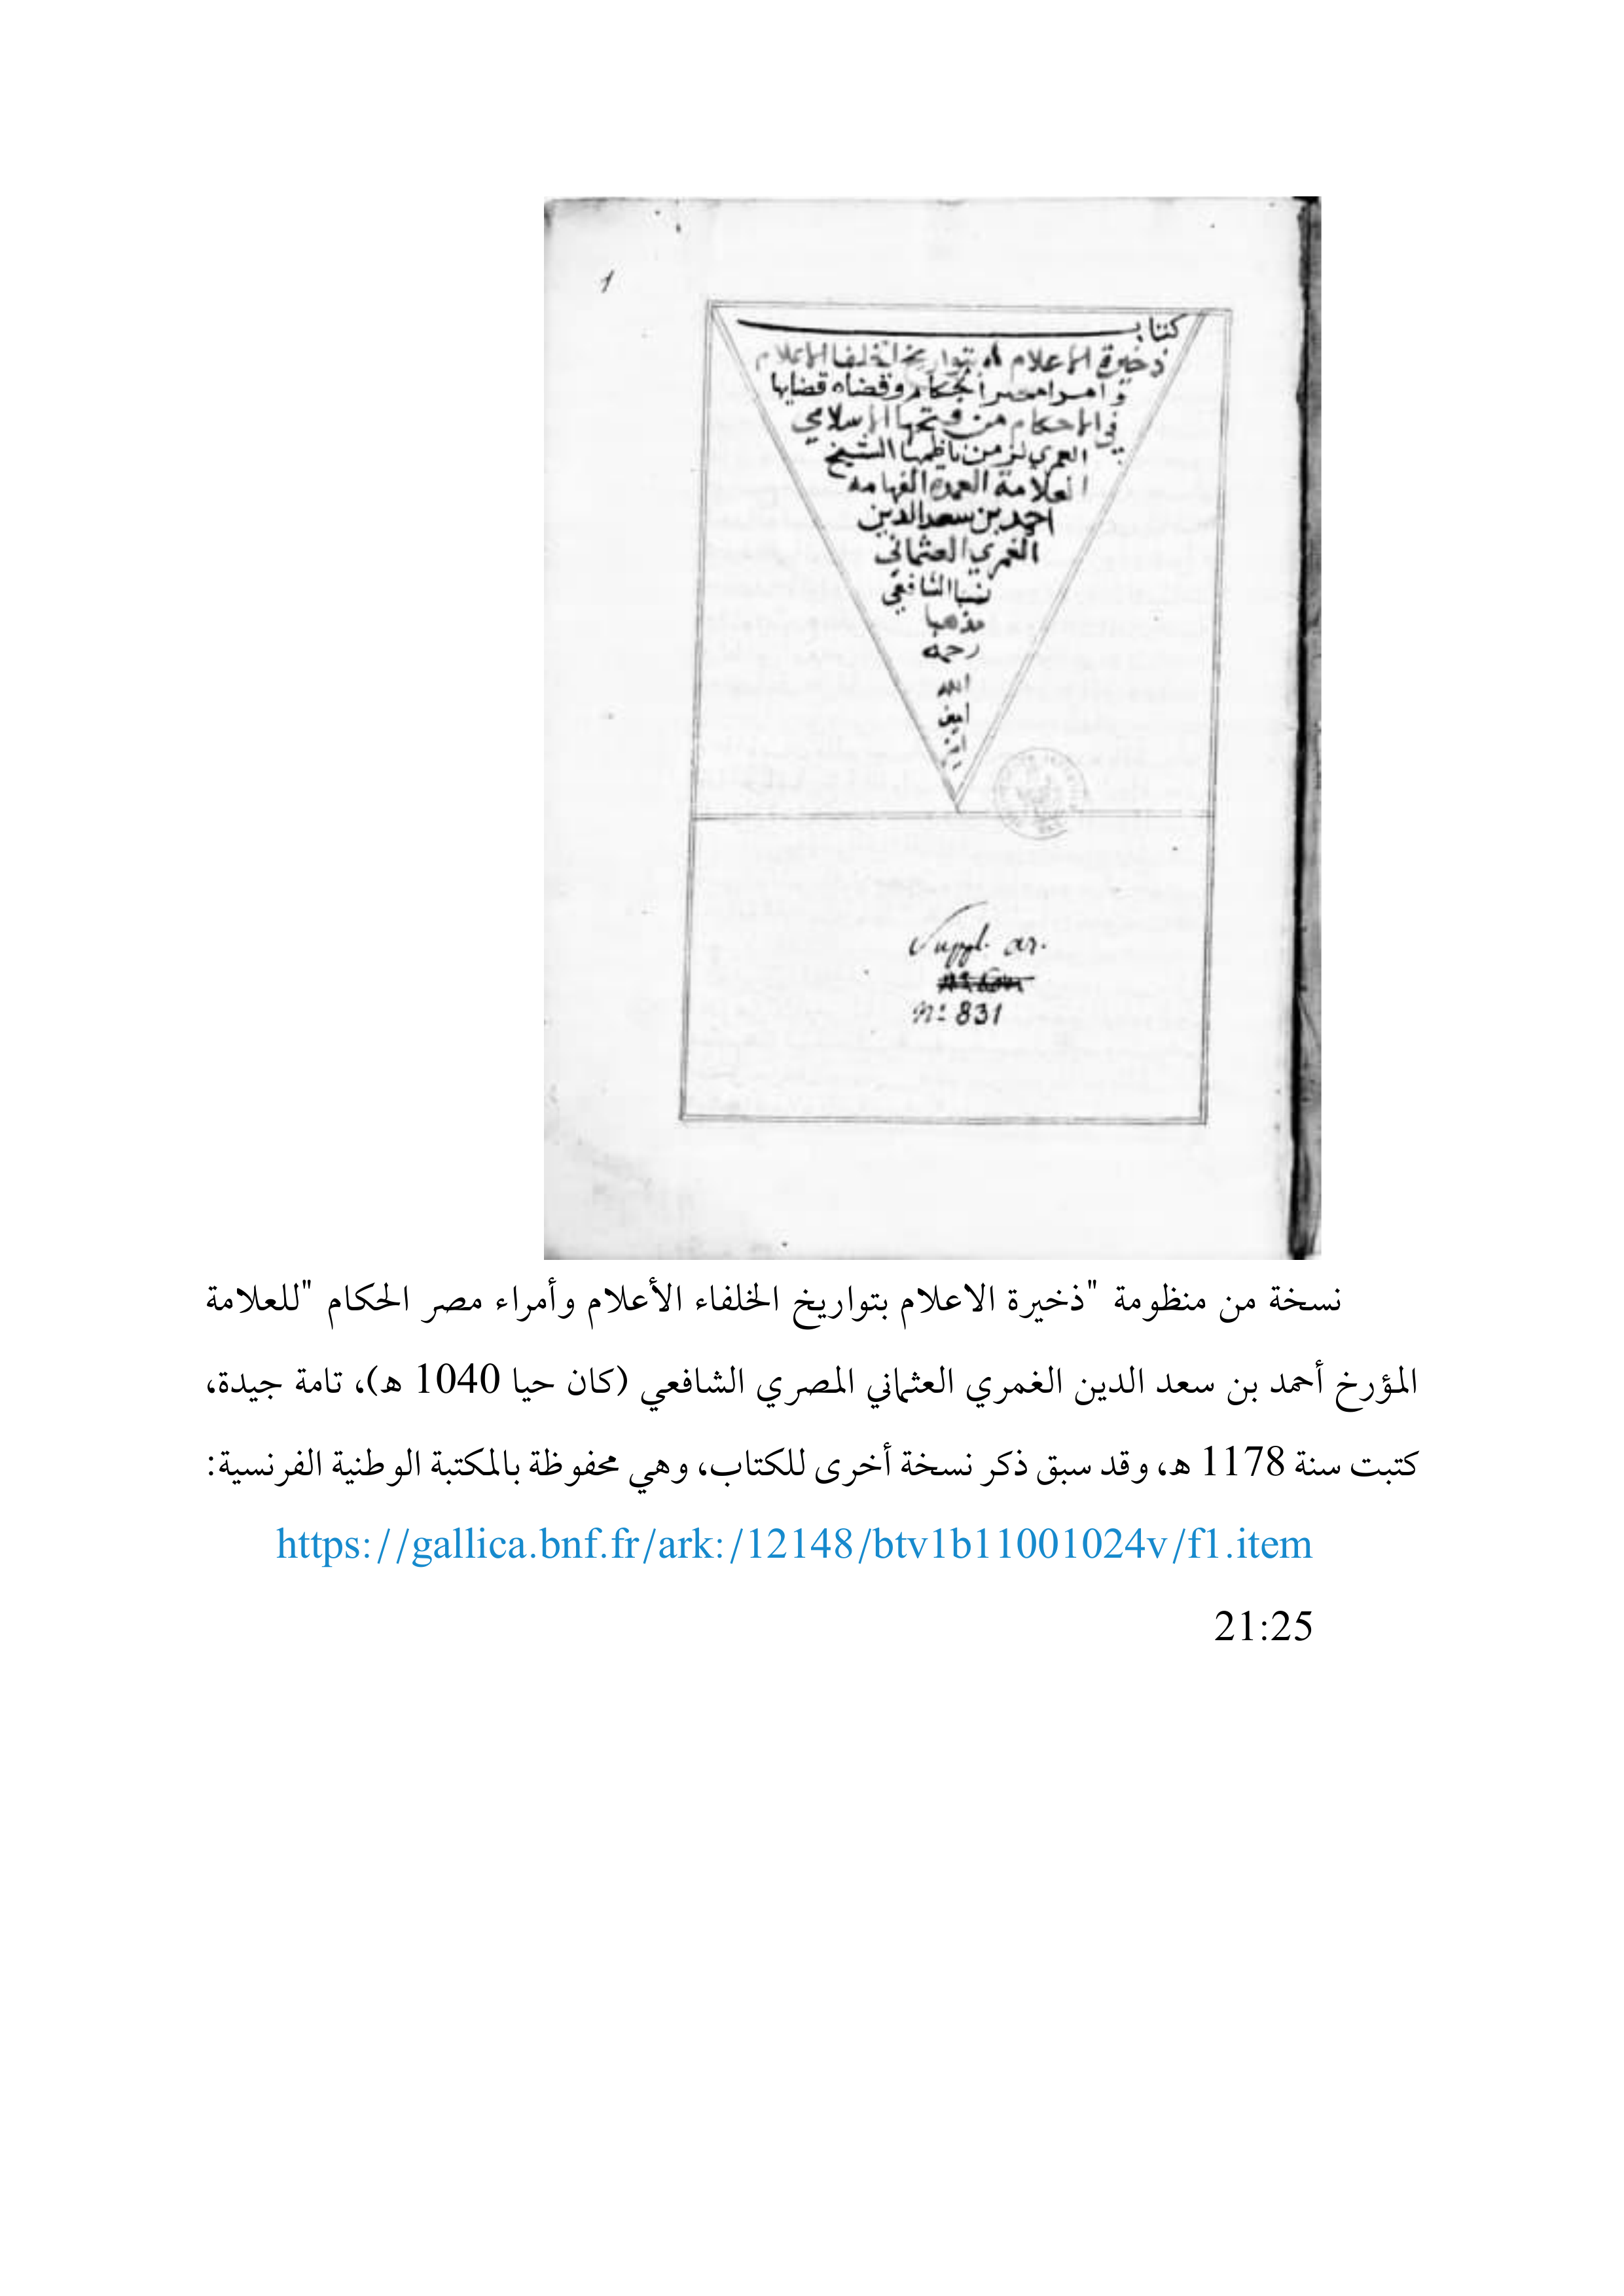 1
كتاب
ذخيرة الاعلام بتواريخ الخلفا الاعلام
و امرا مصر الحكام وقضاه قضايها
في الاحكام من فتحها الاسلامي
العمري لزمن ناظمها الشيخ
العلامة العمدة الفهامه
احمد بن سعد الدين
الغمري العثماني
نسبا الشافعي
مذهبا
رحمه
الله
امين
Suppl. ar.
Nº 831
نسخة من منظومة "ذخيرة الاعلام بتواريخ الخلفاء الأعلام وأمراء مصر الحكام "للعلامة
المؤرخ أحمد بن سعد الدين الغمري العثماني المصري الشافعي (كان حيا 1040 هـ)، تامة جيدة،
كتبت سنة 1178 هـ، وقد سبق ذكر نسخة أخرى للكتاب، وهي محفوظة بالمكتبة الوطنية الفرنسية:
https://gallica.bnf.fr/ark:/12148/btv1b11001024v/f1.item
21:25